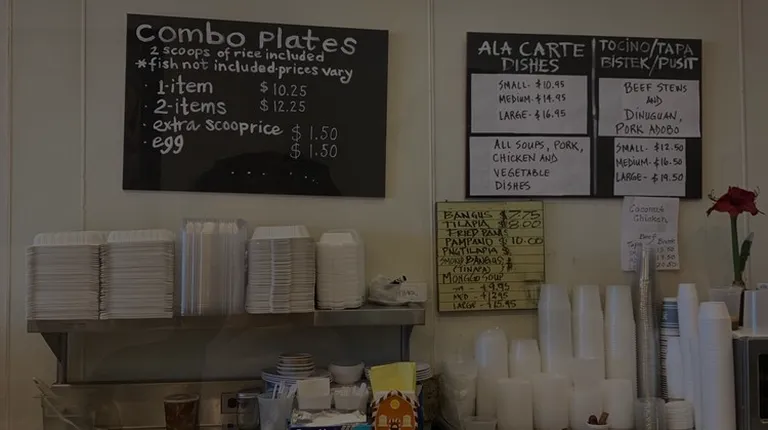 Combo Plates
2 scoops of rice included
*fish not included·prices vary
· 1-item $10.25
· 2-items $12.25
· extra scoop rice $1.50
· egg $1.50
ALA CARTE
DISHES
SMALL- $10.95
MEDIUM- $14.95
LARGE- $16.95
ALL SOUPS, PORK,
CHICKEN AND
VEGETABLE
DISHES
TOCINO/TAPA
BISTEK/PUSIT
BEEF STEWS
AND
DINUGUAN,
PORK ADOBO
SMALL- $12.50
MEDIUM- $16.50
LARGE- $19.50
BANGUS $7.75
TILAPIA $8.00
FRIED
PAMPANO $10.00
TILAPIA
BANGUS
(TINAPA)
MONGGO SOUP
$9.95
MED - $12.95
LARGE - $15.95
Coconut
Chicken
Beef